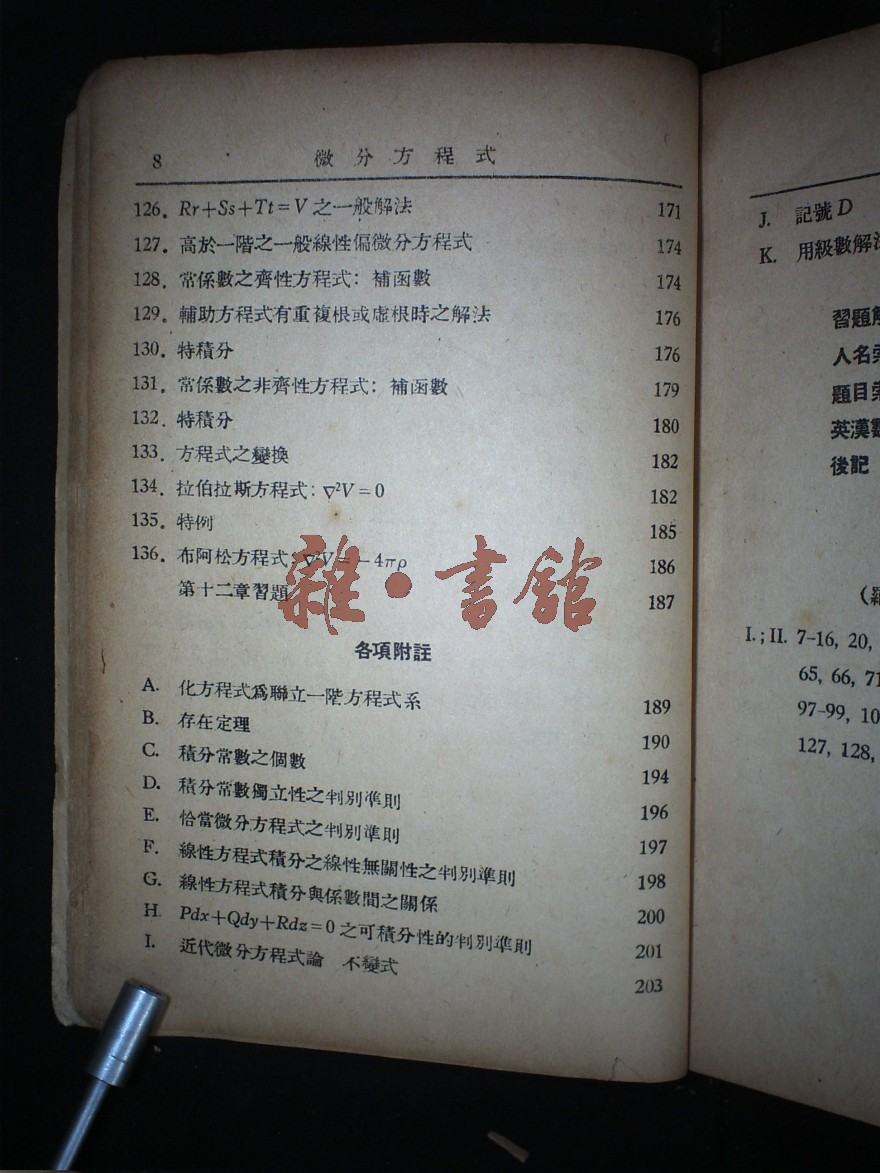 8 微分方程式
126. Rr+Ss+Tt=V 之一般解法 171
127. 高於一階之一般線性偏微分方程式 174
128. 常係數之齊性方程式：補函數 174
129. 輔助方程式有重複根或虛根時之解法 176
130. 特積分 176
131. 常係數之非齊性方程式：補函數 179
132. 特積分 180
133. 方程式之變換 182
134. 拉伯拉斯方程式：∇²V=0 182
135. 特例 185
136. 布阿松方程式：∇²V=-4πρ 186
第十二章習題 187
雜·書館
各項附註
A. 化方程式爲聯立一階方程式系 189
B. 存在定理 190
C. 積分常數之個數 194
D. 積分常數獨立性之判別準則 196
E. 恰當微分方程式之判別準則 197
F. 線性方程式積分之線性無關性之判別準則 198
G. 線性方程式積分與係數間之關係 200
H. Pdx+Qdy+Rdz=0 之可積分性的判別準則 201
I. 近代微分方程式論 不變式 203
J. 記號D
K. 用級數解
習題
人名
題目
英漢
後記
I.; II. 7-16, 20,
65, 66, 71
97-99, 10
127, 128,